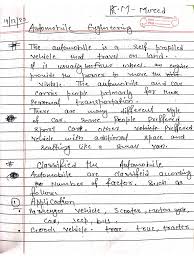 R.M - Mureed
Automobile Engineering
* The automobile is a self propelled
vehicle and travel on land.
* it is usually the engine
provide the power to move the
vehicle. The automobile and car
carry people primarily for the
personal transportation.
There are many different style
of car some People Preffered
Sport car other vehicle Preffered
vehicle with additional space and
seating like a small van.
* Classified the Automobile
Automobile are classified according
to Number of factor. Such as
follows
① Application
Passenger vehicle, Scooter, motorcycle
Car, Jeep, bus
Goods vehicle - truck, tractor